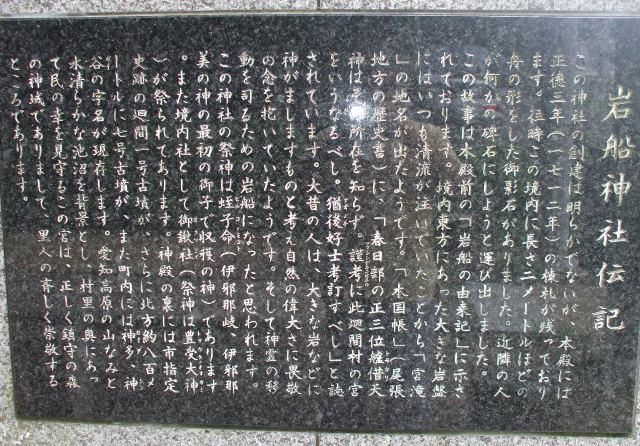 岩船神社伝記
この神社の創建は明らかでないが、本殿には
正徳三年(一七一二年)の棟札が残っており
ます。往時この境内に長さ二メートルほどの
舟の形をした御影石がありました。近隣の人
が何かの碑石にしようと運び出しました。
この故事は本殿前の「岩船の由来記」に示さ
れております。境内東方にあった大きな岩盤
にはいつも清流が注いでいた とから「宮滝
」の地名が出たようです。「本国帳」(尾張
地方の歴史書)に、「春日部の正三位纏借天
神は 所在を知らず。謹考に此廻間村の宮
をいうなるべし。猶後好士考訂すべし」と誌
されています。大昔の人は、大きな岩などに
神がましますものと考え自然の偉大さに畏敬
の念を抱いていたようです。そして神霊の移
動を司るための岩船になったと思われます。
この神社の祭神は蛭子命(伊邪那岐、伊邪那
美の神の最初の御子で収穫の神)であります
。また境内社として御鍬社(祭神は豊受大神
)が祭られてあります。神殿の裏には市指定
史跡の廻間一号古墳が、さらに北方約八百メ
ートルに七号古墳が、また町内には神多、神
谷の字名が現存します。愛知高原の山なみと
水清らかな池沼を背景とし、村里の奥にあっ
て民の幸を見守るこの宮は、正しく鎮守の森
の神域でありまして、里人の斉しく崇敬する
ところであります。